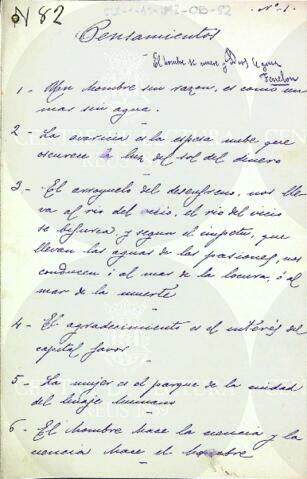 N 82
Nº 1.
Pensamientos
El hombre se mueve y Dios le guia
Fenelon
1 - Un hombre sin razon, es como un
mar sin agua.
2 - La avaricia es la espesa nube, que
oscurece la luz del sol del dinero
3 - El arroyuelo del desenfreno, nos lle-
va al rio del vicio, el rio del vicio
se bifurca, y segun el impetu, que
llevan las aguas de las pasiones, nos
conducen ó al mar de la locura, ó al
mar de la muerte
4 - El agradecimiento es el interés del
capital favor
5 - La mujer es el parque de la ciudad
del linaje humano
6 - El hombre hace la ciencia y la
ciencia hace el hombre